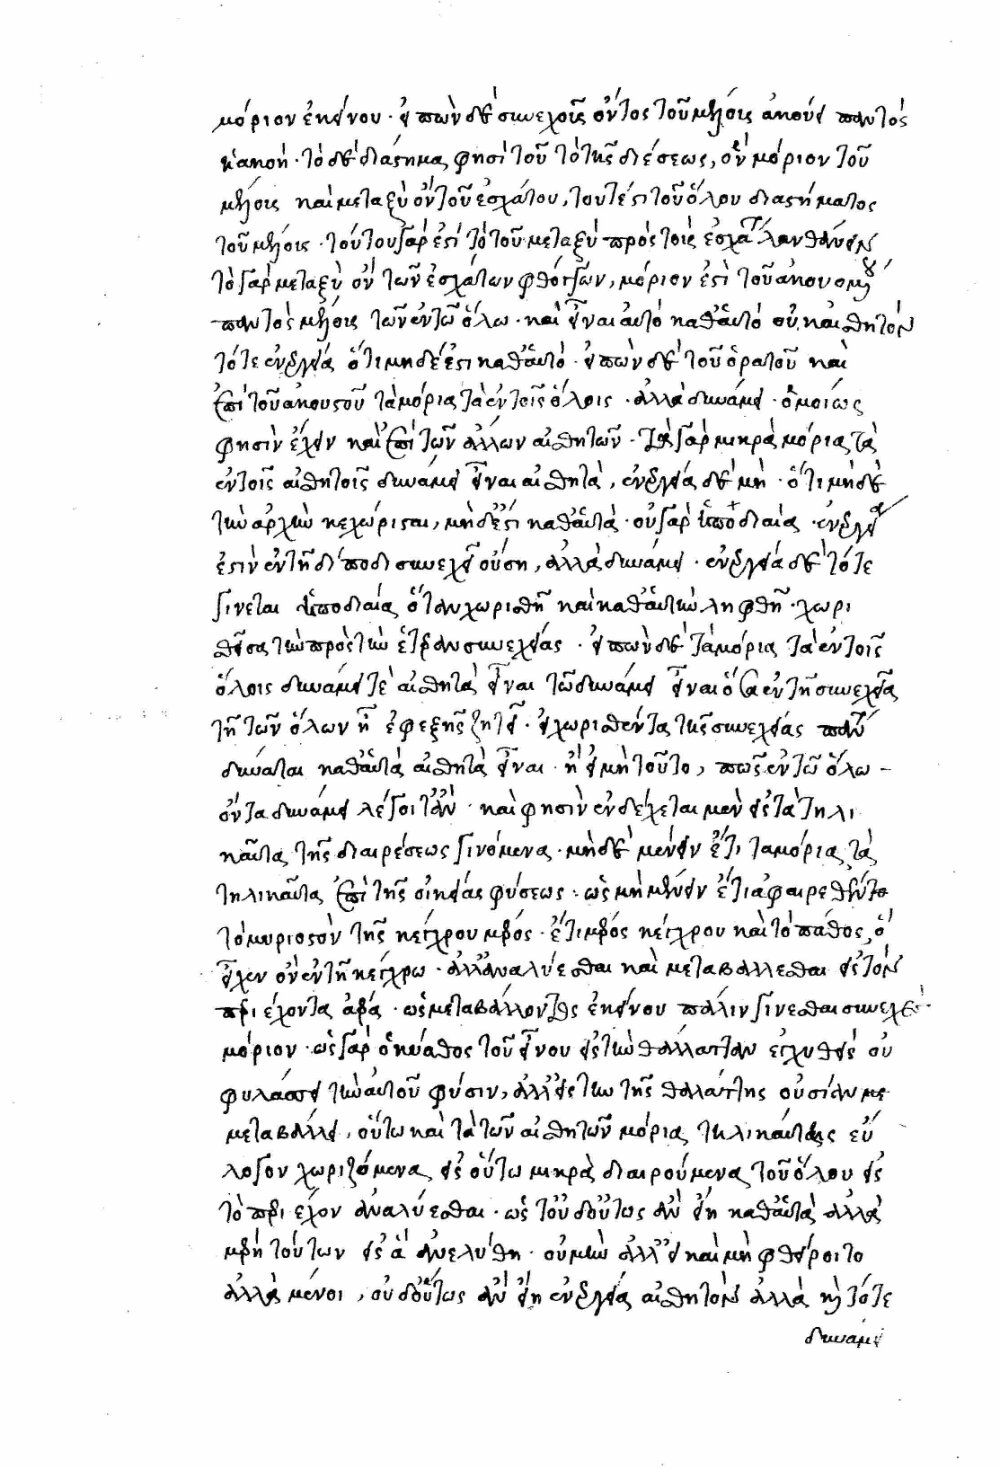 μόριον ἐκείνου · εἰπὼν δὲ συνεχοῦς ὄντος τοῦ μέλους ἀκούει παντὸς
καὶ ἀκοή · τὸ δὲ διάστημα, φησὶ τοῦτο τῆς διέσεως, ὃν μόριον τοῦ
μέλους καὶ μεταξὺ ὂν τοῦ ἐσχάτου, τουτέστι τοῦ ὅλου διαστήματος
τοῦ μέλους · τούτου γάρ ἐστι τὸ τοῦ μεταξὺ πρὸς τοῖς ἐσχάτοις λανθάνειν
τὸ γὰρ μεταξὺ ὂν τῶν ἐσχάτων φθόγγων, μόριον ἐστὶ τοῦ ἀκουομένου
παντὸς μέλους τῶν ἐν τῷ ὅλῳ · καὶ εἶναι αὐτὸ καθ' αὑτὸ οὐκ αἰσθητὸν
τότε ἐνεργείᾳ ὅτι μηδέ ἐστι καθ' αὑτό · εἰπὼν δὲ τοῦ ὁρατοῦ καὶ
ἐπὶ τοῦ ἀκουστοῦ τὰ μόρια τὰ ἐν τοῖς ὅλοις · ἀλλὰ δυνάμει · ὁμοίως
φησὶν ἔχειν καὶ ἐπὶ τῶν ἄλλων αἰσθητῶν · τὰ γὰρ μικρὰ μόρια τὰ
ἐν τοῖς αἰσθητοῖς δυνάμει εἶναι αἰσθητὰ, ἐνεργείᾳ δὲ μή · ὅτι μηδὲ
τὴν ἀρχὴν κεχώρισται, μηδέ ἐστι καθ' αὑτά · οὐ γὰρ ἡ ποδιαία · ἐνεργείᾳ
ἐστὶν ἐν τῇ δίποδι συνεχεῖ οὔση, ἀλλὰ δυνάμει · ἐνεργείᾳ δὲ τότε
γίνεται ἡ ποδιαία ὅταν χωρισθῇ καὶ καθ' αὑτὴν ληφθῇ · χωρι
θεῖσα τὴν πρὸς τὴν ἑτέραν συνεχείας · εἰπὼν δὲ τὰ μόρια τὰ ἐν τοῖς
ὅλοις δυνάμει τε αἰσθητὰ εἶναι τῷ δυνάμει εἶναι ὅσα ἐν τῇ συνεχείᾳ
τῇ τῶν ὅλων ᾖ ἐφεξῆς ζητεῖ · εἰ χωρισθέντα τῆς συνεχείας
δύναται καθ' αὑτὰ αἰσθητὰ εἶναι · ἢ εἰ μὴ τοῦτο, πῶς ἐν τῷ ὅλῳ –
ὄντα δυνάμει λέγοιτ' ἄν · καὶ φησὶν ἐνδέχεται μὲν εἰς τὰ τηλι
καῦτα τῆς διαιρέσεως γινόμενα · μηδὲ μένειν ἔτι τὰ μόρια τὰ
τηλικαῦτα ἐπὶ τῆς οἰκείας φύσεως · ὡς μὴ μένειν ἔτι ἀφαιρεθέντα
τὸ μυριοστὸν τῆς κέγχρου μέρος · ἔτι μέρος κέγχρου καὶ τὸ πάθος ὃ
εἶχεν ὂν ἐν τῇ κέγχρῳ · ἀλλ' ἀναλύεσθαι καὶ μεταβάλλεσθαι εἰς τὸν
περιέχοντα ἀέρα · ὡς μεταβάλλοντος ἐκείνου πάλιν γίνεσθαι συνεχὲς
μόριον · ὡς γὰρ ὁ κύαθος τοῦ οἴνου εἰς τὴν θάλατταν ἐγχυθεὶς οὐ
φυλάσσει τὴν αὑτοῦ φύσιν, ἀλλ' εἰς τὴν τῆς θαλάττης οὐσίαν με
μεταβάλλει, οὕτω καὶ τὰ τῶν αἰσθητῶν μόρια τηλικαῦτα εὔ
λογον χωριζόμενα εἰς οὕτω μικρὰ διαιρούμενα τοῦ ὅλου εἰς
τὸ περιέχον ἀναλύεσθαι · ὡς τοῦδ' οὕτως ἂν εἴη καθ' αὑτὰ ἀλλὰ
μέρη τούτων εἰς ἃ ἀνελύθη · οὐ μὴν ἀλλ' εἰ καὶ μὴ φθείροιτο
ἀλλὰ μένοι, οὐδ' οὕτως ἂν εἴη ἐνεργείᾳ αἰσθητὸν ἀλλὰ καὶ τότε
δυνάμει